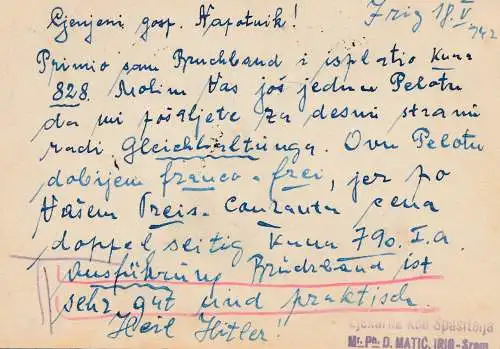 Cjenjeni gosp. Napotnik!
Irig 18.V 942
Primio sam Bruchband i isplatio Kuna
828. Molim Vas još jednu Pelotu
da mi pošaljete za desnu stranu
radi Gleichhaltunga. Ovu Pelotu
dobijem franco-frei, jer po
Vašem Preis-Couranta cena
doppelseitig Kuna 790. I.a.
Ausführung Bruchband ist
sehr gut und praktisch.
Heil Hitler!
Ljekarna kod Spasitelja
Mr. Ph. D. MATIĆ, IRIG-Srem